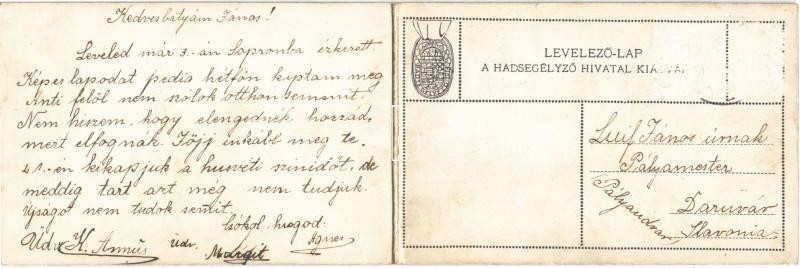 Kedvesbátyám János!
Leveled már 3.-án Sopronba érkezett.
Képes lapodat pedig hétfőn kaptam meg
Anti felöl nem szólok otthon semmit.
Nem hiszem, hogy elengednék hozzád,
mert elfognák. Jőjj inkább meg te.
21.-én kikapjuk a husvéti szinidőt, de
meddig tart azt még nem tudjuk.
Ujságot nem tudok semit.
Csókol hugod:
Üdv. K. Annus Üdv. Margit Ágnes
LEVELEZŐ-LAP
A HADSEGÉLYZŐ HIVATAL
Luif János úrnak
Pályamester
Pályaudvar
Daruvár
Slavonia